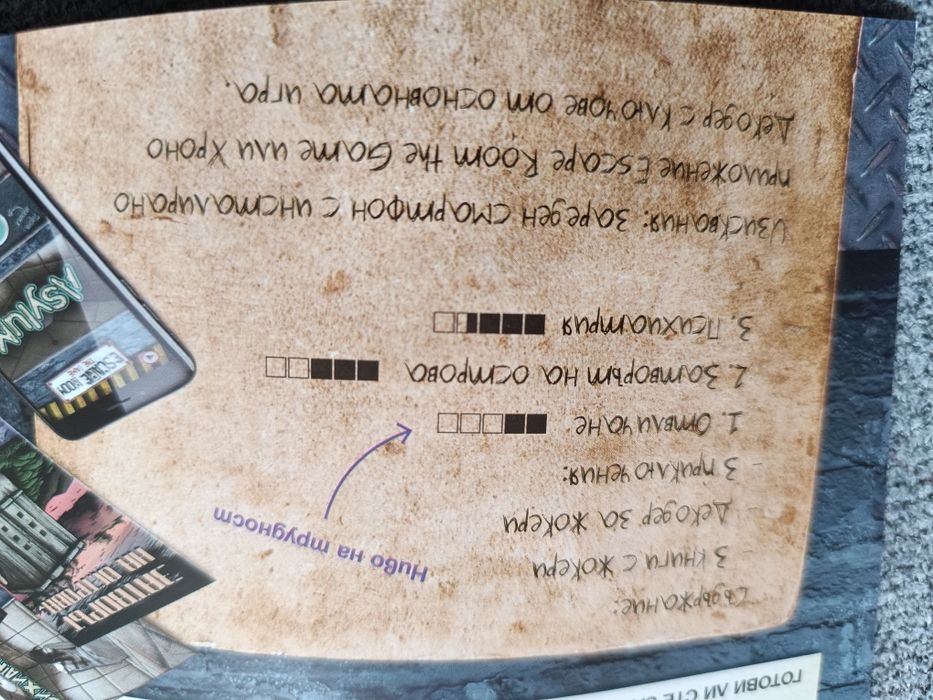 ГОТОВИ ЛИ СТЕ
Съдържание:
- 3 книги с жокери
- Декодер за жокери
- 3 приключения:
Ниво на трудност
1. Отвличане
2. Затворът на острова
3. Психиатрия
Изисквания: зареден смартфон с инсталирано
приложение Escape Room the Game или Хроно
Декодер с ключове от основната игра.
ЗАТВОРЪТ
НА ОСТРОВА
ESCAPE ROOM
THE GAME
ASYLUM